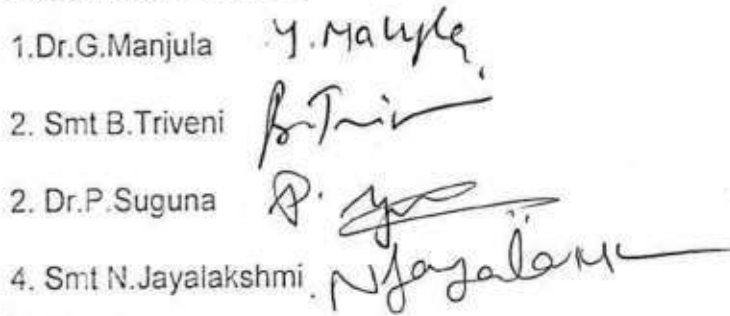 1.Dr.G.Manjula G.Manjula
2. Smt B.Triveni B.Trive
2. Dr.P.Suguna P.
4. Smt N.Jayalakshmi. NJayalaksh